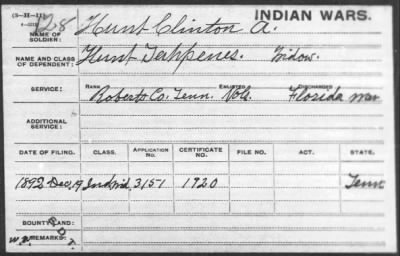 (3-111)
128
INDIAN WARS.
NAME OF SOLDIER: Hunt Clinton A.
NAME AND CLASS OF DEPENDENT: Hunt Tahpenes. Widow.
SERVICE: RANK ENLISTED DISCHARGED
Roberts Co. Tenn. Vols. Florida War
ADDITIONAL SERVICE:
DATE OF FILING. CLASS. APPLICATION No. CERTIFICATE No. FILE NO. ACT. STATE.
1892 Dec. 19 Ind Wid. 3151 1920 Tenn
BOUNTY LAND:
REMARKS: